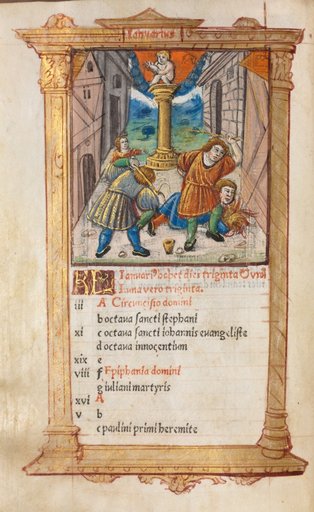 Ianuarius
KL Ianuari⁹ habet dies triginta & vnū
Luna vero triginta.
iii A Circuncisio domini
b octaua sancti stephani
xi c octaua sancti iohannis euangeliste
d octaua innocentium
xix e
viii f Epiphania domini
g iuliani martyris
xvi A
v b
c paulini primi heremite